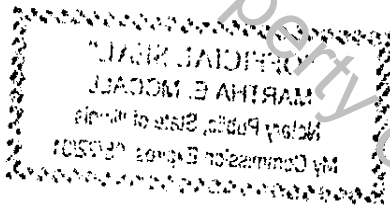 "OFFICIAL SEAL"
MARTHA E. MCCALL
Notary Public, State of Illinois
My Commission Expires
perty